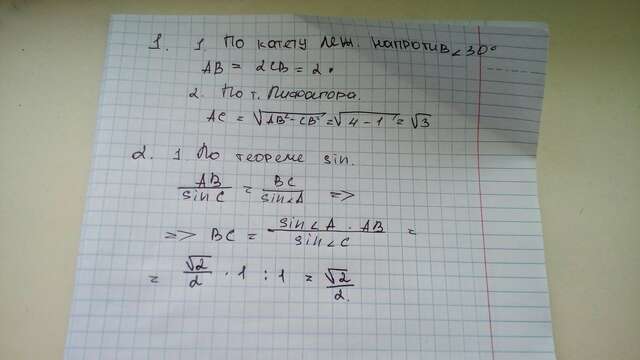 1. 1. По катету леж. напротив ∠30°
AB = 2CB = 2.
2. По т. Пифагора.
AC = √AB² - CB² = √4 - 1 = √3
2. 1 По теореме sin.
AB/sin C = BC/sin∠A =>
=> BC = sin∠A · AB/sin∠C =
= √2/2 · 1 : 1 = √2/2.